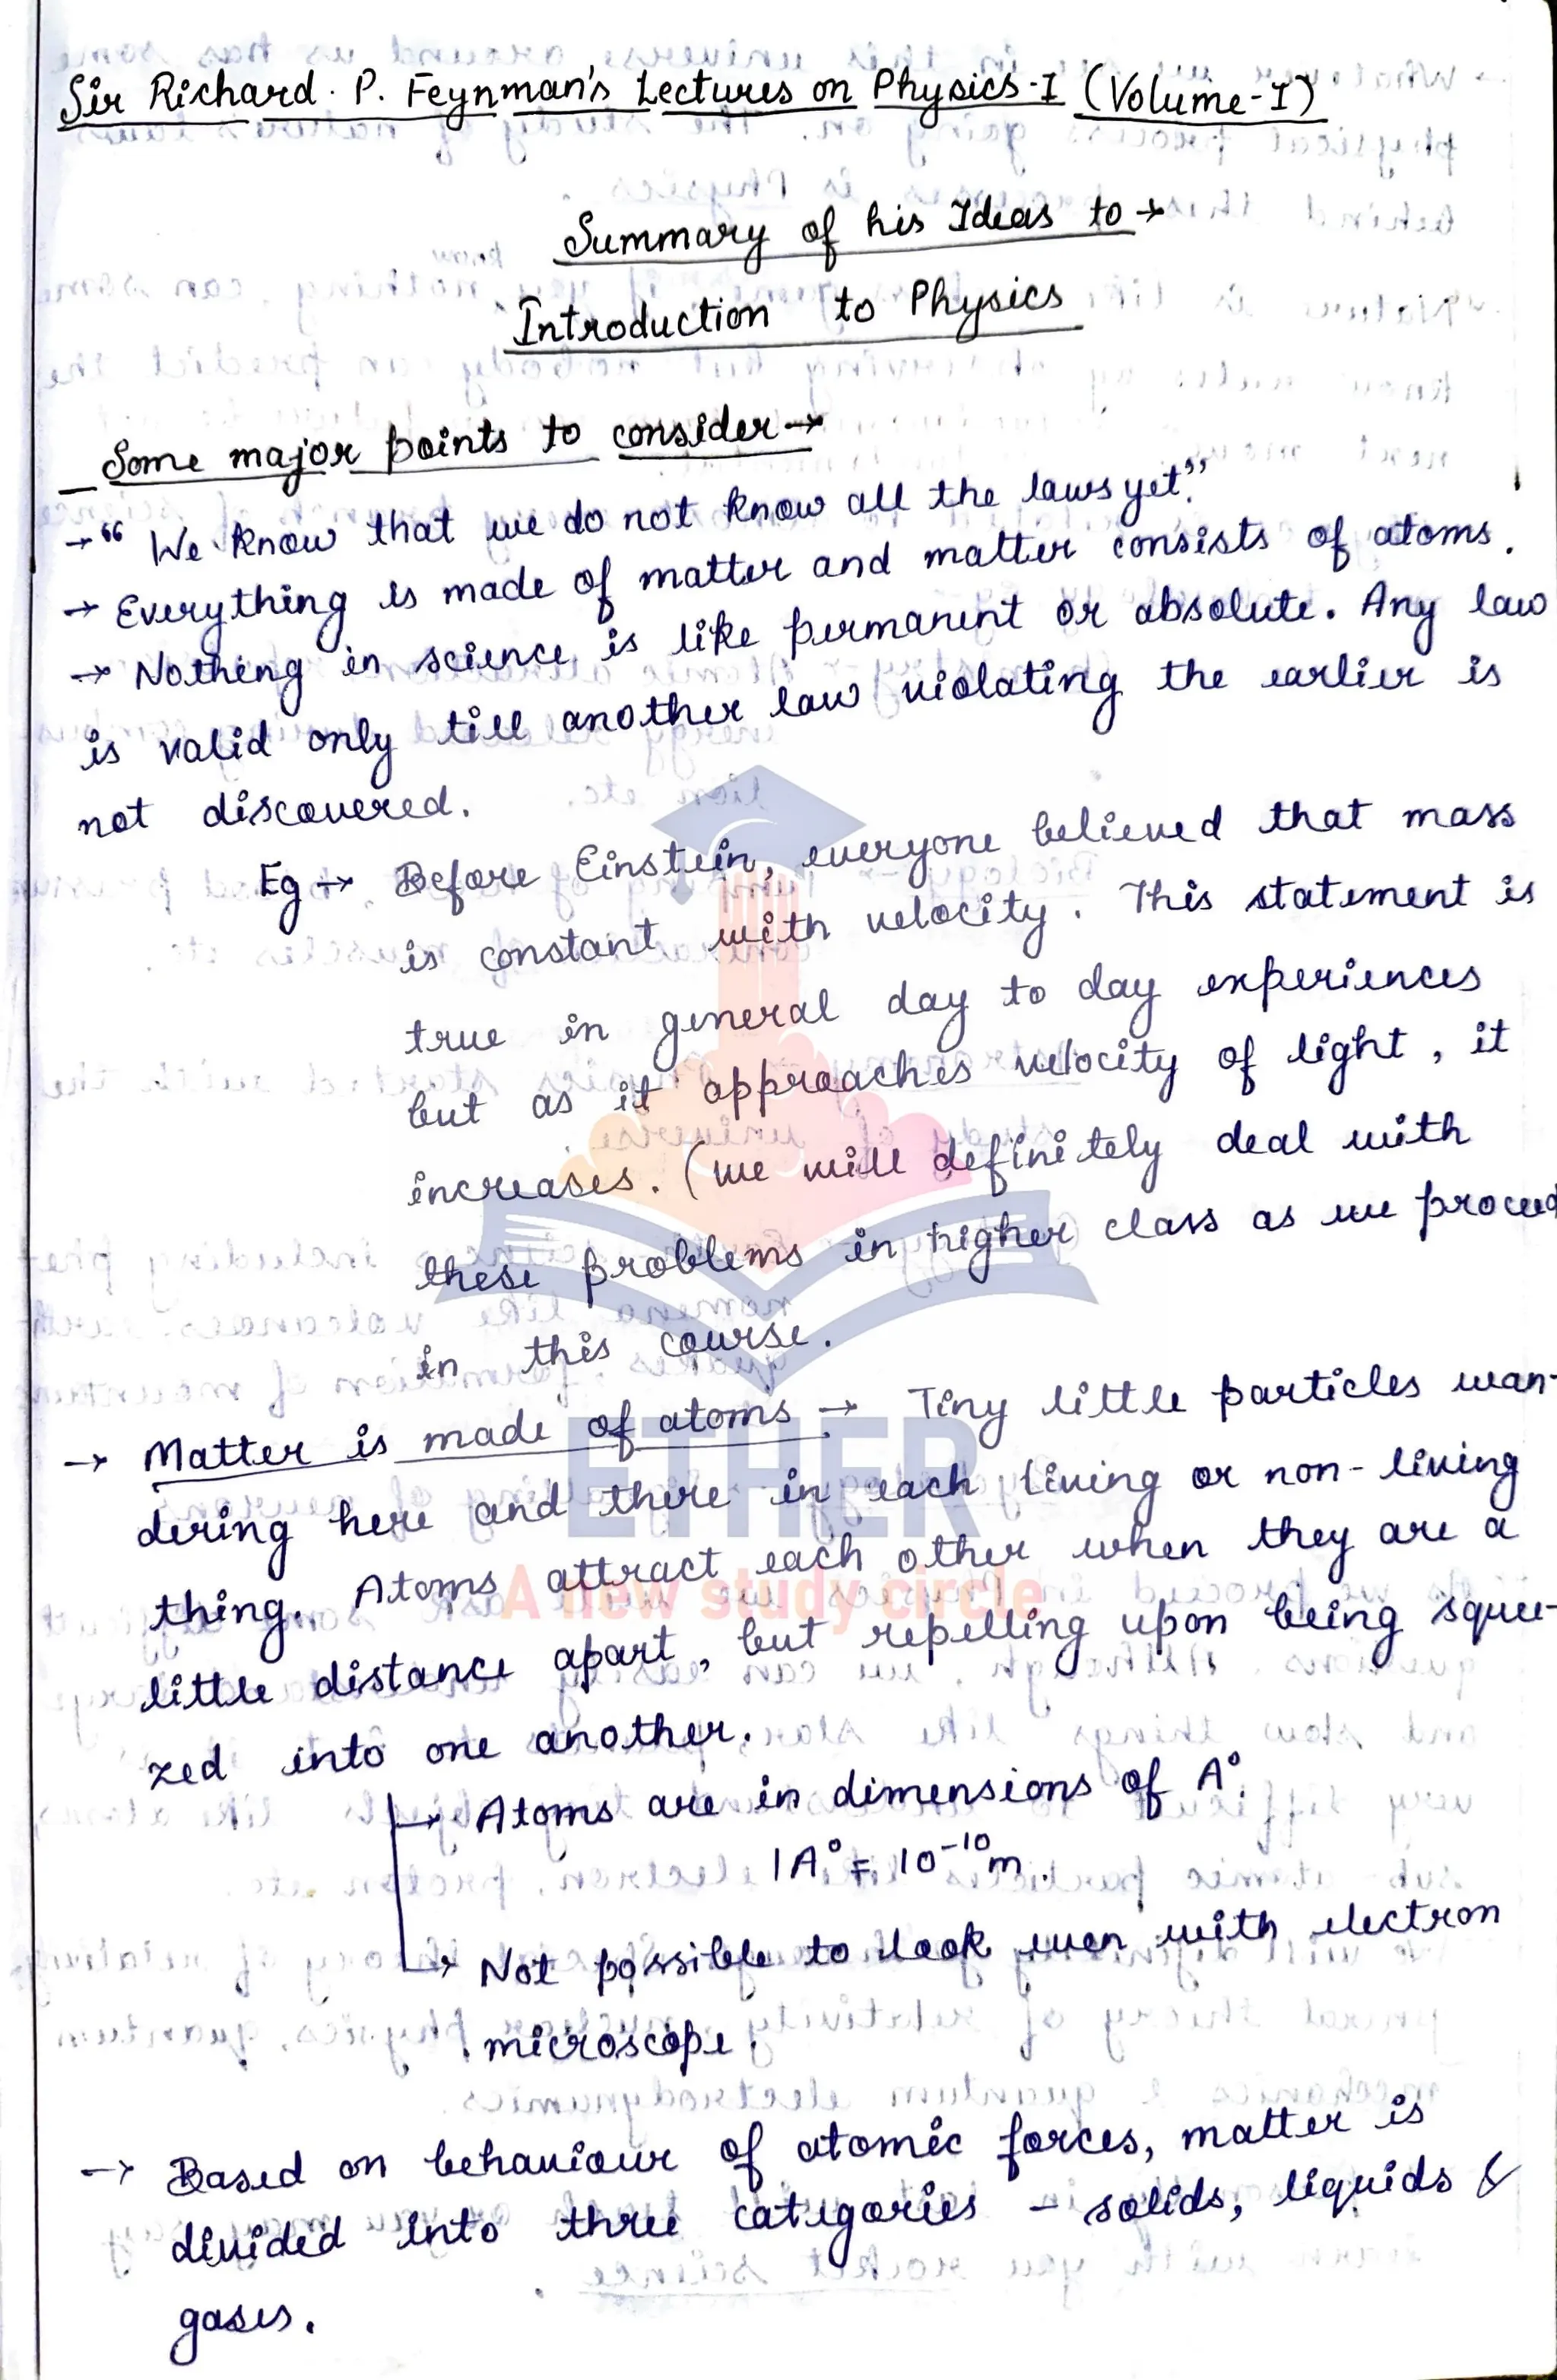 Sir Richard. P. Feynman's Lectures on Physics-I (Volume-I)
Summary of his Ideas to →
Introduction to Physics
Some major points to consider →
→ "We know that we do not know all the laws yet."
→ Everything is made of matter and matter consists of atoms.
→ Nothing in science is like permanent or absolute. Any law
is valid only till another law violating the earlier is
not discovered.
Eg → Before Einstein, everyone believed that mass
is constant with velocity. This statement is
true in general day to day experiences
but as it approaches velocity of light, it
increases. (we will definitely deal with
these problems in higher class as we proceed
in this course.
→ Matter is made of atoms → Tiny little particles wan-
dering here and there in each living or non-living
thing. Atoms attract each other when they are a
little distance apart, but repelling upon being squee-
zed into one another.
→ Atoms are in dimensions of A°.
1A° = 10⁻¹⁰m.
→ Not possible to look even with electron
microscope.
→ Based on behaviour of atomic forces, matter is
divided into three categories - solids, liquids &
gases.
ETHER
A new study circle